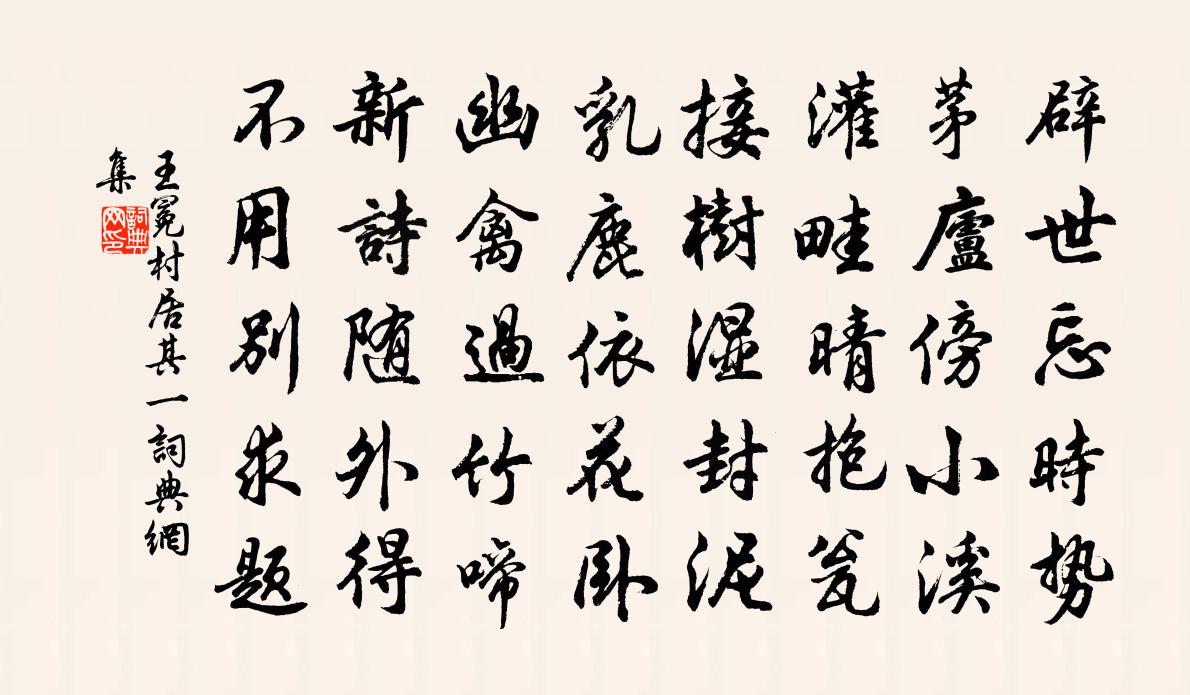 辟世忘時勢
茅廬傍小溪
灌畦晴抱瓮
接樹濕封泥
乳鹿依花卧
幽禽過竹啼
新詩随外得
不用別求题
王冕村居其一詞典網
集
詞典网印